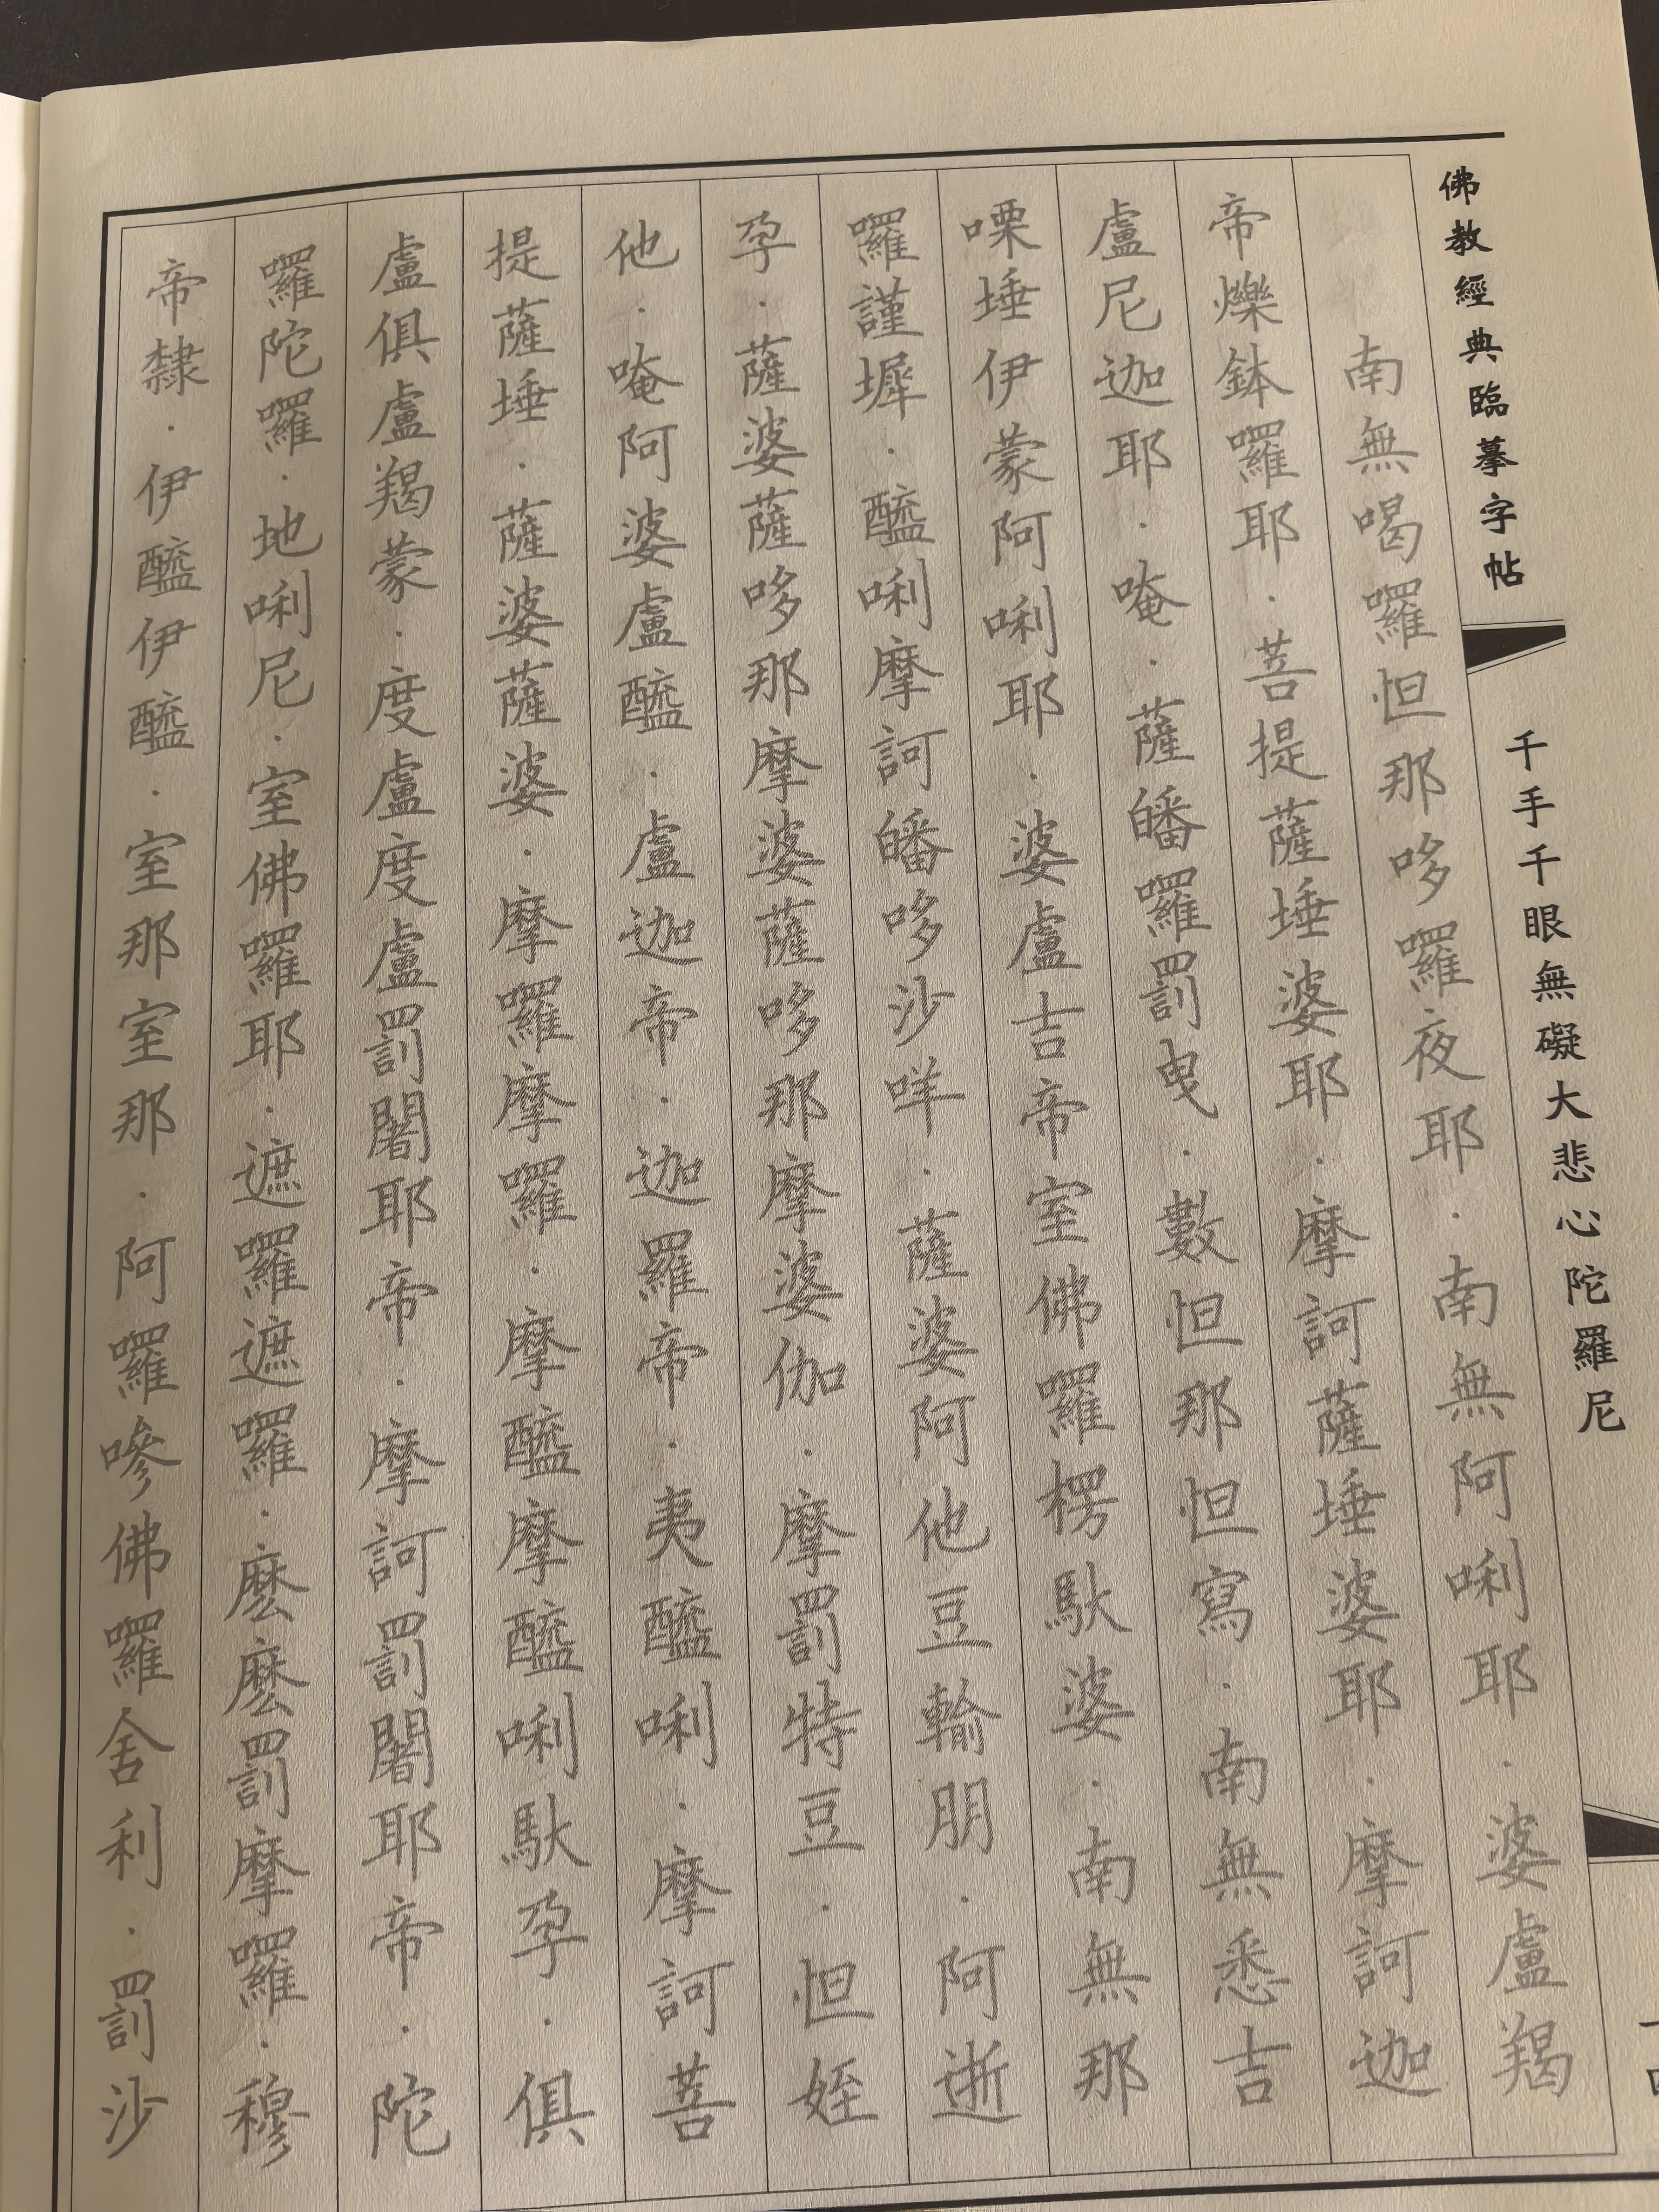 佛教經典臨摹字帖
千手千眼無礙大悲心陀羅尼
南無喝囉怛那哆囉夜耶·南無阿唎耶·婆盧羯
帝爍鉢囉耶·菩提薩埵婆耶·摩訶薩埵婆耶·摩訶迦
盧尼迦耶·唵·薩皤囉罰曳·數怛那怛寫·南無悉吉
㗚埵伊蒙阿唎耶·婆盧吉帝室佛囉楞馱婆·南無那
囉謹墀·醯唎摩訶皤哆沙咩·薩婆阿他豆輸朋·阿逝
孕·薩婆薩哆那摩婆薩哆那摩婆伽·摩罰特豆·怛姪
他·唵阿婆盧醯·盧迦帝·迦羅帝·夷醯唎·摩訶菩
提薩埵·薩婆薩婆·摩囉摩囉·摩醯摩醯唎馱孕·俱
盧俱盧羯蒙·度盧度盧罰闍耶帝·摩訶罰闍耶帝·陀
囉陀囉·地唎尼·室佛囉耶·遮囉遮囉·麼麼罰摩囉·穆
帝隸·伊醯伊醯·室那室那·阿囉嘇佛囉舍利·罰沙